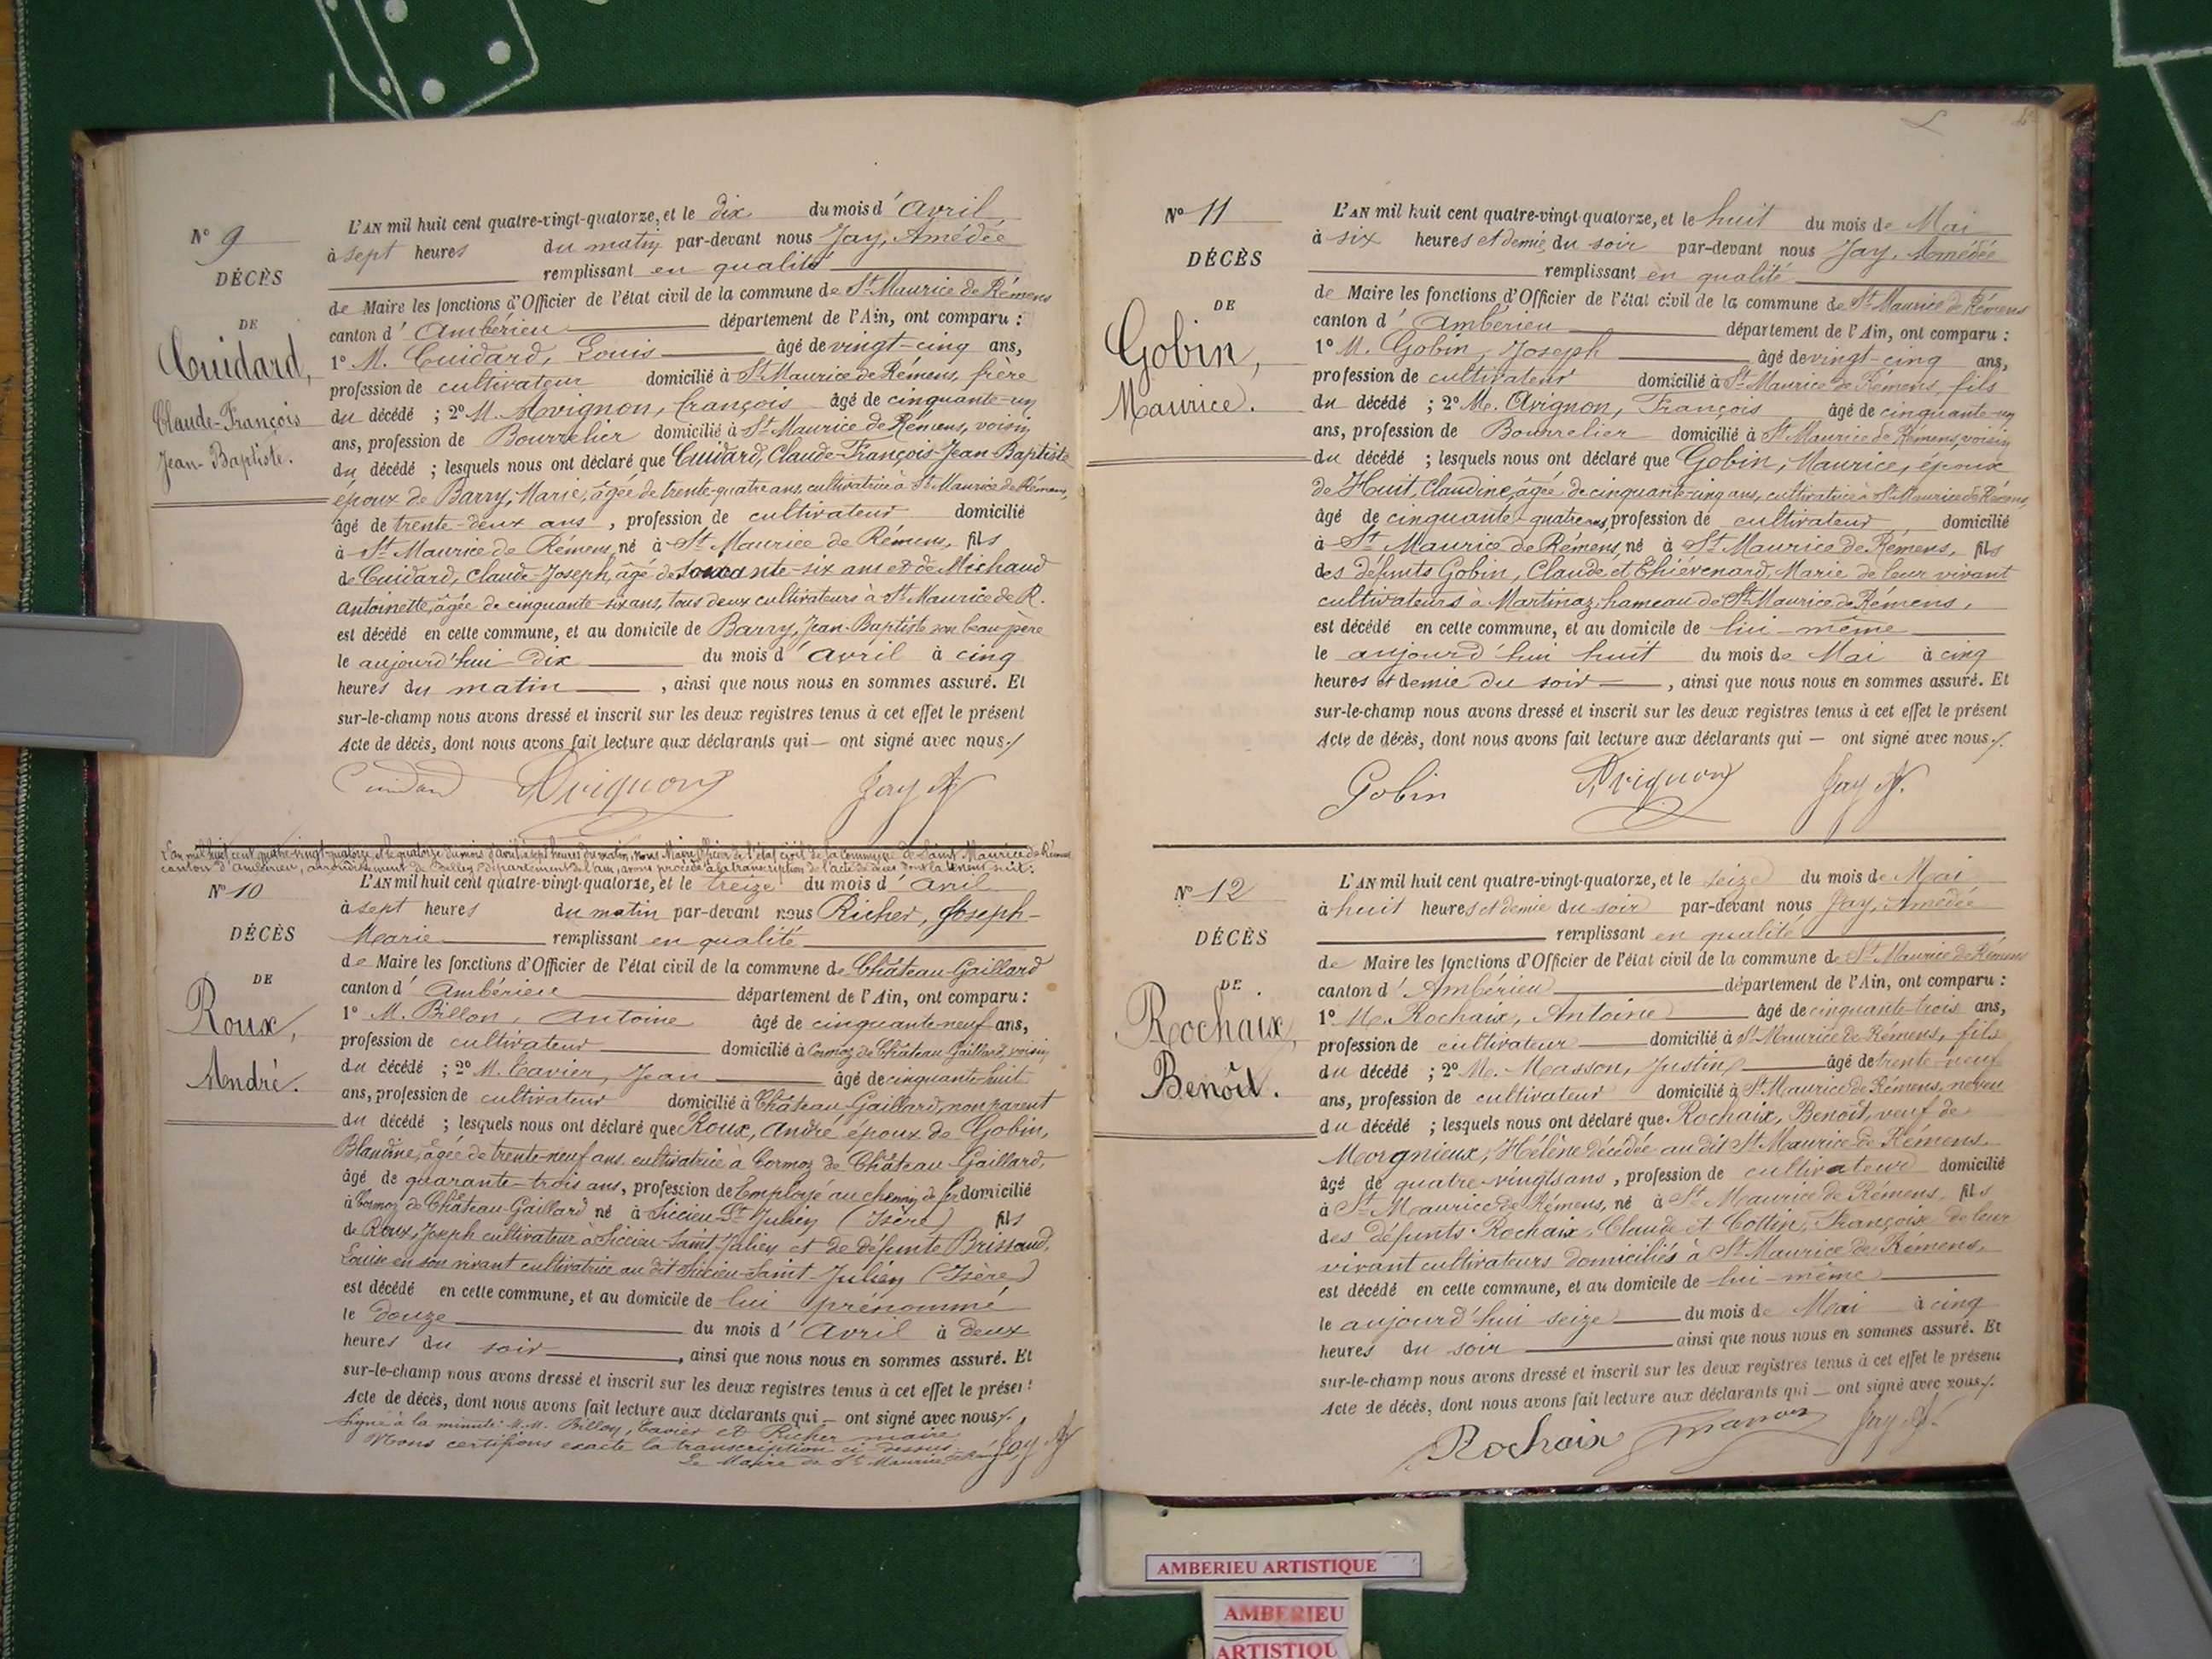 N° 9
DÉCÈS
DE
Cuidard,
Claude-François
Jean-Baptiste.
L'AN mil huit cent quatre-vingt-quatorze, et le dix du mois d'avril
à sept heures du matin par-devant nous Jay, Amédée
remplissant en qualité
de Maire les fonctions d'Officier de l'état civil de la commune de St Maurice de Rémens
canton d'Ambérieu département de l'Ain, ont comparu :
1° M. Cuidard, Louis âgé de vingt-cinq ans,
profession de cultivateur domicilié à St Maurice de Rémens, frère
du décédé ; 2° M. Avignon, François âgé de cinquante-un
ans, profession de Bourrelier domicilié à St Maurice de Rémens, voisin
du décédé ; lesquels nous ont déclaré que Cuidard, Claude-François-Jean-Baptiste
époux de Barry, Marie, âgée de trente-quatre ans, cultivatrice à St Maurice de Rémens,
âgé de trente-deux ans, profession de cultivateur domicilié
à St Maurice de Rémens, né à St Maurice de Rémens, fils
de Cuidard, Claude-Joseph, âgé de soixante-six ans et de Michaud
Antoinette, âgée de cinquante-six ans, tous deux cultivateurs à St Maurice de R.
est décédé en cette commune, et au domicile de Barry, Jean-Baptiste son beau-père
le aujourd'hui dix du mois d'avril à cinq
heures du matin, ainsi que nous nous en sommes assuré. Et
sur-le-champ nous avons dressé et inscrit sur les deux registres tenus à cet effet le présent
Acte de décès, dont nous avons fait lecture aux déclarants qui — ont signé avec nous./.
Cuidard Avignon Jay A
L'an mil huit cent quatre-vingt-quatorze, et le quatorze du mois d'avril à sept heures du matin, nous Maire officier de l'état civil de la commune de Saint Maurice de Rémens
canton d'Ambérieu, arrondissement de Belley, département de l'Ain, avons procédé à la transcription de l'acte de décès dont la teneur suit :
N° 10
DÉCÈS
DE
Roux,
André.
L'AN mil huit cent quatre-vingt-quatorze, et le treize du mois d'avril
à sept heures du matin par-devant nous Richer, Joseph-
Marie remplissant en qualité
de Maire les fonctions d'Officier de l'état civil de la commune de Château-Gaillard
canton d'Ambérieu département de l'Ain, ont comparu :
1° M. Billon, Antoine âgé de cinquante-neuf ans,
profession de cultivateur domicilié à Cormoz de Château Gaillard, voisin
du décédé ; 2° M. Cavier, Jean âgé de cinquante-huit
ans, profession de cultivateur domicilié à Château-Gaillard, non parent
du décédé ; lesquels nous ont déclaré que Roux, André époux de Gobin,
Blandine, âgée de trente-neuf ans, cultivatrice à Cormoz de Château Gaillard,
âgé de quarante-trois ans, profession de Employé au chemin de fer domicilié
à Cormoz de Château-Gaillard né à Siccieu-St Julien (Isère) fils
de Roux, Joseph cultivateur à Siccieu-Saint-Julien et de défunte Brissaud,
Louise en son vivant cultivatrice au dit Siccieu-Saint-Julien (Isère)
est décédé en cette commune, et au domicile de lui prénommé
le Douze du mois d'Avril à deux
heures du soir, ainsi que nous nous en sommes assuré. Et
sur-le-champ nous avons dressé et inscrit sur les deux registres tenus à cet effet le présent
Acte de décès, dont nous avons fait lecture aux déclarants qui — ont signé avec nous./.
Signé à la minute : M.M. Billon, Cavier et Richer maire
Nous certifions exacte la transcription ci-dessus
Le Maire de St Maurice de Rémens, Jay A
N° 11
DÉCÈS
DE
Gobin,
Maurice.
L'AN mil huit cent quatre-vingt-quatorze, et le huit du mois de Mai
à six heures et demie du soir par-devant nous Jay, Amédée
remplissant en qualité
de Maire les fonctions d'Officier de l'état civil de la commune de St Maurice de Rémens
canton d'Ambérieu département de l'Ain, ont comparu :
1° M. Gobin, Joseph âgé de vingt-cinq ans,
profession de cultivateur domicilié à St Maurice de Rémens, fils
du décédé ; 2° M. Avignon, François âgé de cinquante-un
ans, profession de Bourrelier domicilié à St Maurice de Rémens, voisin
du décédé ; lesquels nous ont déclaré que Gobin, Maurice, époux
de Huit, Claudine, âgée de cinquante-cinq ans, cultivatrice à St Maurice de Rémens,
âgé de cinquante-quatre ans, profession de cultivateur domicilié
à St Maurice de Rémens, né à St Maurice de Rémens, fils
des défunts Gobin, Claude et Thiévenard, Marie de leur vivant
cultivateurs à Martinaz, hameau de St Maurice de Rémens,
est décédé en cette commune, et au domicile de lui-même
le aujourd'hui huit du mois de Mai à cinq
heures et demie du soir, ainsi que nous nous en sommes assuré. Et
sur-le-champ nous avons dressé et inscrit sur les deux registres tenus à cet effet le présent
Acte de décès, dont nous avons fait lecture aux déclarants qui — ont signé avec nous./.
Gobin Avignon Jay A.
N° 12
DÉCÈS
DE
Rochaix,
Benoît.
L'AN mil huit cent quatre-vingt-quatorze, et le seize du mois de Mai
à huit heures et demie du soir par-devant nous Jay, Amédée
remplissant en qualité
de Maire les fonctions d'Officier de l'état civil de la commune de St Maurice de Rémens
canton d'Ambérieu département de l'Ain, ont comparu :
1° M. Rochaix, Antoine âgé de cinquante-trois ans,
profession de cultivateur domicilié à St Maurice de Rémens, fils
du décédé ; 2° M. Masson, Justin âgé de trente-neuf
ans, profession de cultivateur domicilié à St Maurice de Rémens, neveu
du décédé ; lesquels nous ont déclaré que Rochaix, Benoît, veuf de
Morgnieux, Hélène décédée au dit St Maurice de Rémens
âgé de quatre-vingts ans, profession de cultivateur domicilié
à St Maurice de Rémens, né à St Maurice de Rémens, fils
des défunts Rochaix, Claude et Cottin, Françoise de leur
vivant cultivateurs domiciliés à St Maurice de Rémens,
est décédé en cette commune, et au domicile de lui-même
le aujourd'hui seize du mois de Mai à cinq
heures du soir ainsi que nous nous en sommes assuré. Et
sur-le-champ nous avons dressé et inscrit sur les deux registres tenus à cet effet le présent
Acte de décès, dont nous avons fait lecture aux déclarants qui — ont signé avec nous./.
Rochaix Masson Jay A.
AMBERIEU ARTISTIQUE
AMBERIEU
ARTISTIQU